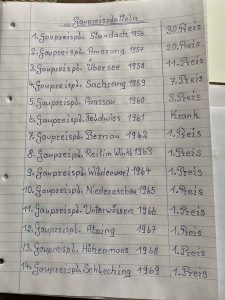 Gaupreisplatteln
1. Gaupreispl. Staudach 1956 30. Preis
2. Gaupreispl. Amerang 1957 20. Preis
3. Gaupreispl. Übersee 1958 11. Preis
4. Gaupreispl. Sachrang 1959 7. Preis
5. Gaupreispl. Grassau 1960 3. Preis
6. Gaupreispl. 1961 Krank
7. Gaupreispl. Bernau 1962 1. Preis
8. Gaupreispl. Reit im Winkl 1963 1. Preis
9. Gaupreispl. Wildenwart 1964 1. Preis
10. Gaupreispl. Niederaschau 1965 1. Preis
11. Gaupreispl. Unterwössen 1966 1. Preis
12. Gaupreispl. Atzing 1967 1. Preis
13. Gaupreispl. Höhenmoos 1968 1. Preis
14. Gaupreispl. Schleching 1969 1. Preis